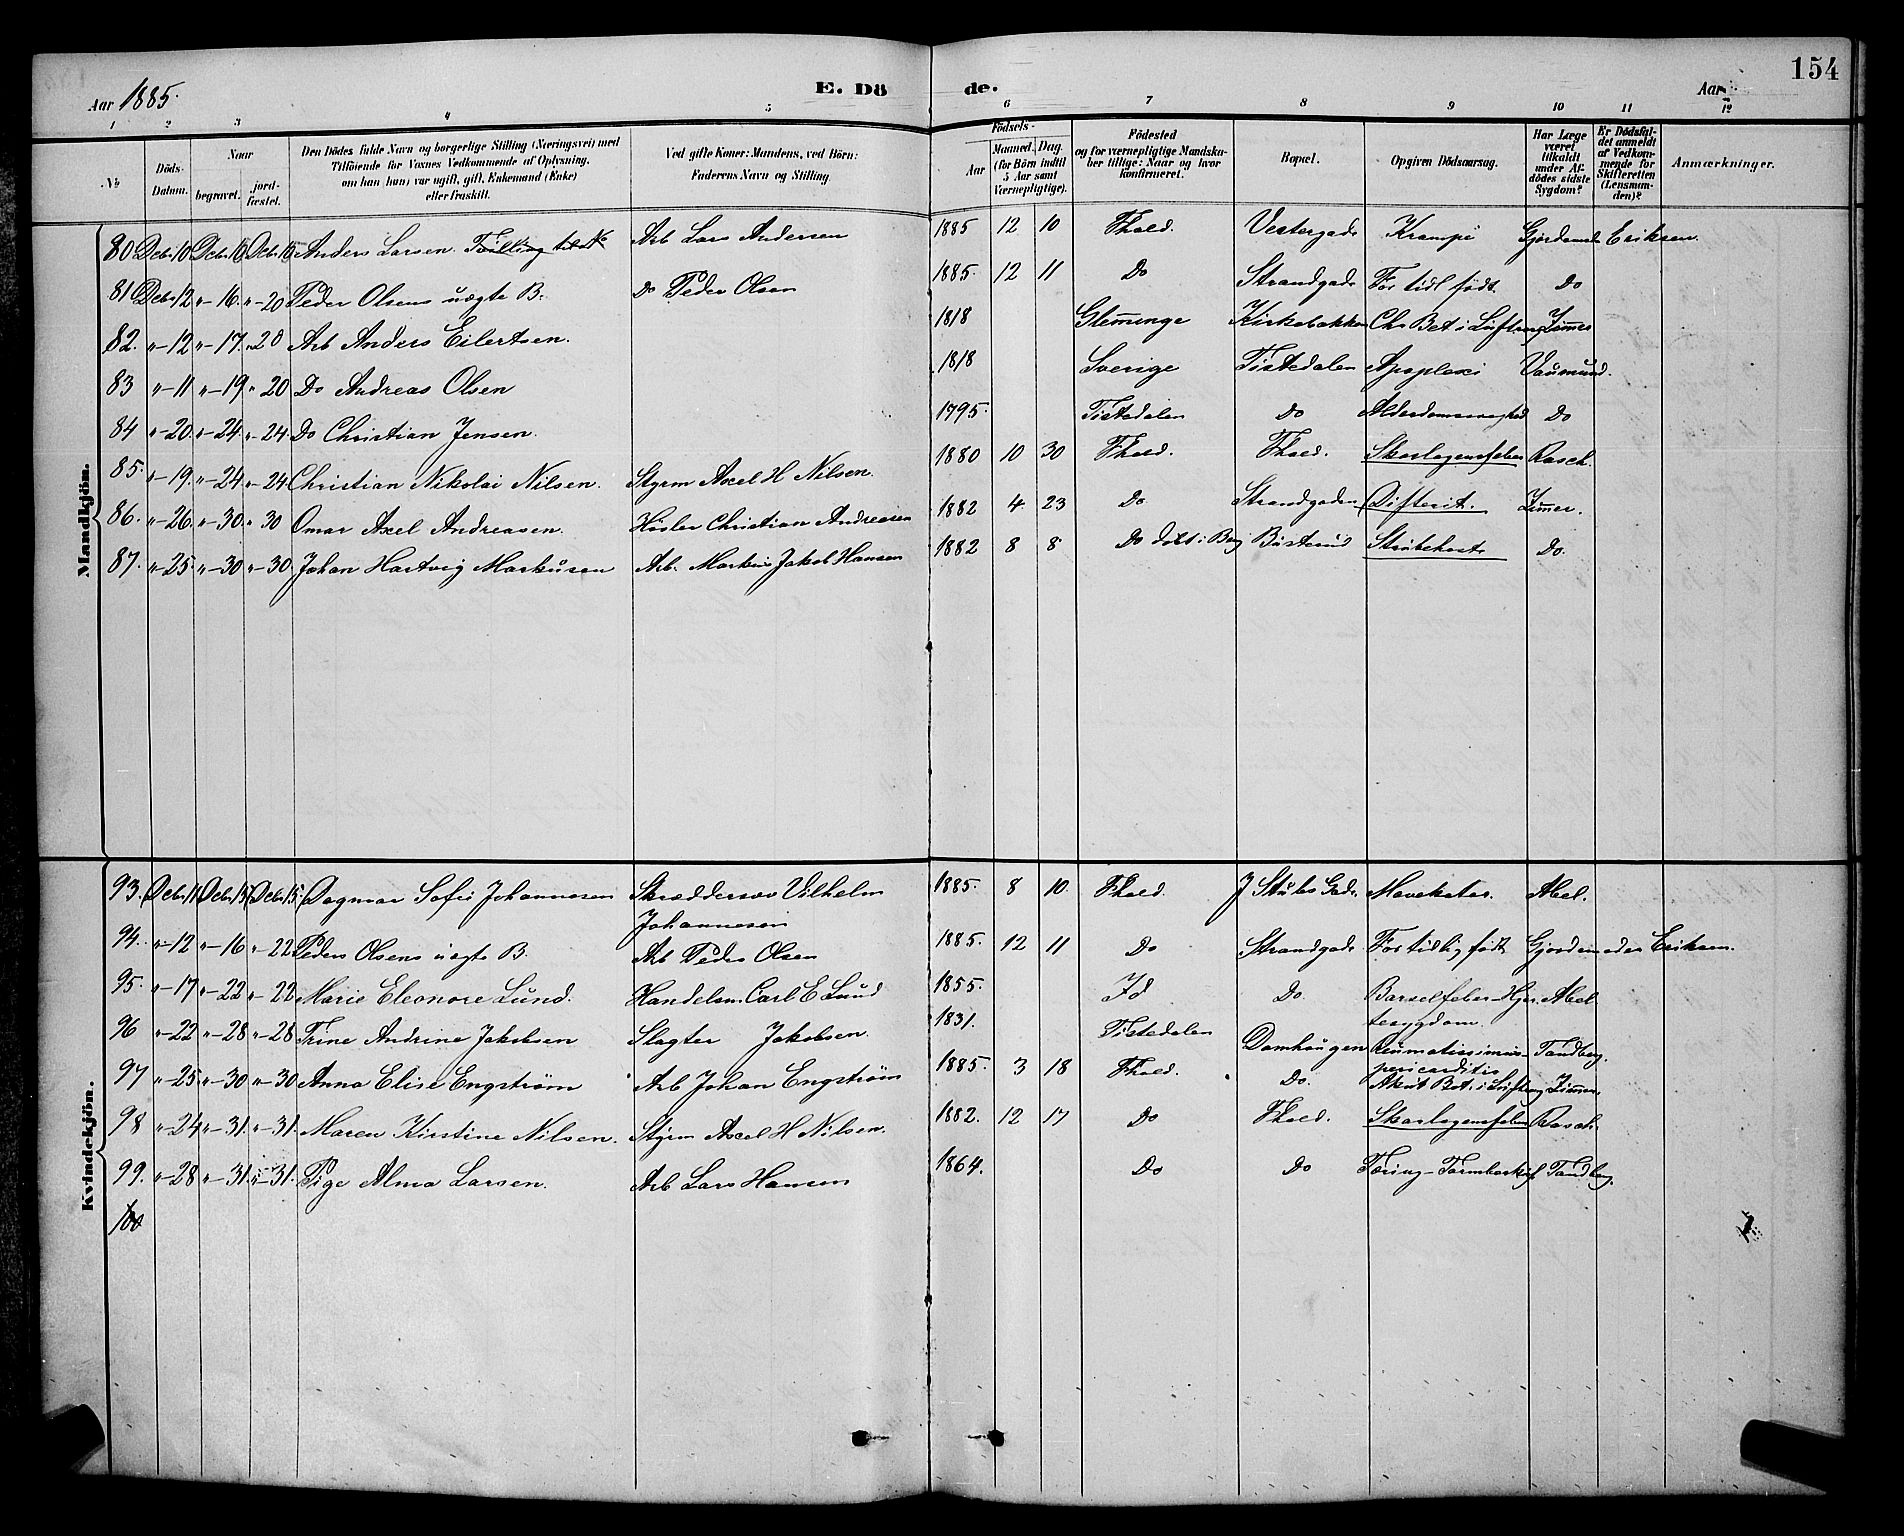 154
Aar 1885. E. Dø de. Aar
1 2 3 4 5 6 7 8 9 10 11 12
№ Döds-Datum. Naar begravet. jord-fæstet. Den Dödes fulde Navn og borgerlige Stilling (Næringsvei) med Tilföiende for Voxnes Vedkommende af Oplysning, om han (hun) var ugift, gift, Enkemand (Enke) eller fraskilt. Ved gifte Koner: Mandens, ved Börn: Faderens Navn og Stilling. Födsels- Aar Maaned. Dag. (for Börn indtil 5 Aar samt Værnepligtige). Födested og for værnepligtige Mandskaber tillige: Naar og hvor konfirmeret. Bopæl. Opgiven Dödsaarsag. Har Læge været tilkaldt under Afdödes sidste Sygdom? Er Dödsfaldet anmeldt af Vedkommende for Skifteretten (Lensmanden)? Anmærkninger.
Mandkjön.
80 Decbr 10 Decbr 16 Decbr 16 Anders Larsen Tvilling Arb Lars Andersen 1885 12 10 Fhald. Vestergade Krampe Gjordemod Eriksen.
81 Decbr 12 "-16. "-20 Peder Olsens uægte B. Do Peder Olsen 1885. 12 11 Do Strandgade For tidl født. Do
82. "-12 "-17. "20 Arb Anders Eilertsen. 1818 Glemminge Kirkebakken Chr Bet i Luftrør Zimmer
83 "-11 "-19 "20 Do Andreas Olsen 1818 Sverige Tistedalen Apoplexi Vaumund.
84 "-20. "-24 "-24. Do Christian Jensen. 1795. Tistedalen Do Alderdomssvaghed Do
85. "-19. "-24 "-24 Christian Nikolai Nilsen. Styrm Axel H Nilsen. 1880 10 30 Fhald. Fhald. Skarlagensfeber Rasch.
86. "-26. "-30. "30 Omar Axel Andreasen. Høsler Christian Andreasen 1882 4 23 Do Strandgaden Difterit. Zimmer.
87. "-25. "-30 "-30. Johan Hartvig Markusen Arb. Markus Jakob Hansen 1882 8 8 Do døbt i Berg Busterud Strubehoste Do.
Kvindekjön.
93. Decbr 11 Decbr 15 Decbr 15 Dagmar Sofie Johannesen Skræddersv Vilhelm
Johannesen 1885. 8 10. Fhald. J Stubs Gade. Mavekatar. Abel.
94. "-12 "-16 "-22. Peders Olsens uægte B. Arb Peder Olsen 1885. 12 11 Do Strandgade. For tidlig født Gjordemoder Eriksen.
95. "-17 "-22 "-22. Marie Eleonore Lund. Handelsm. Carl E Lund 1855. Id Do. Barselfeber-Hjer Abel
tesygdom.
96 "-22 "-28 "-28 Trine Andrine Jakobsen Slagter Jakobsen. 1831. Tistedalen Damhaugen Reumatissimus- Tandberg.
pericarditis
97 "-25 "-30 "-30. Anna Elise Engstrøm Arb Johan Engstrøm 1885. 3 18 Fhald. Do. Akut Bet. i Luftrør Zimmer
98 "-24 "-31. "-31. Maren Kirstine Nilsen. Styrm Axel H Nilsen. 1882. 12 17 Do Fhald. Skarlagensfeber Rasch.
99. "-28 "-31. "-31. Pige Alma Larsen. Arb Lars Hansen 1864. Do Do Tæring- Tandberg.
100